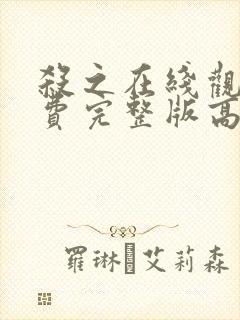 殺之在綫觀
費完整版高
羅琳 艾莉森